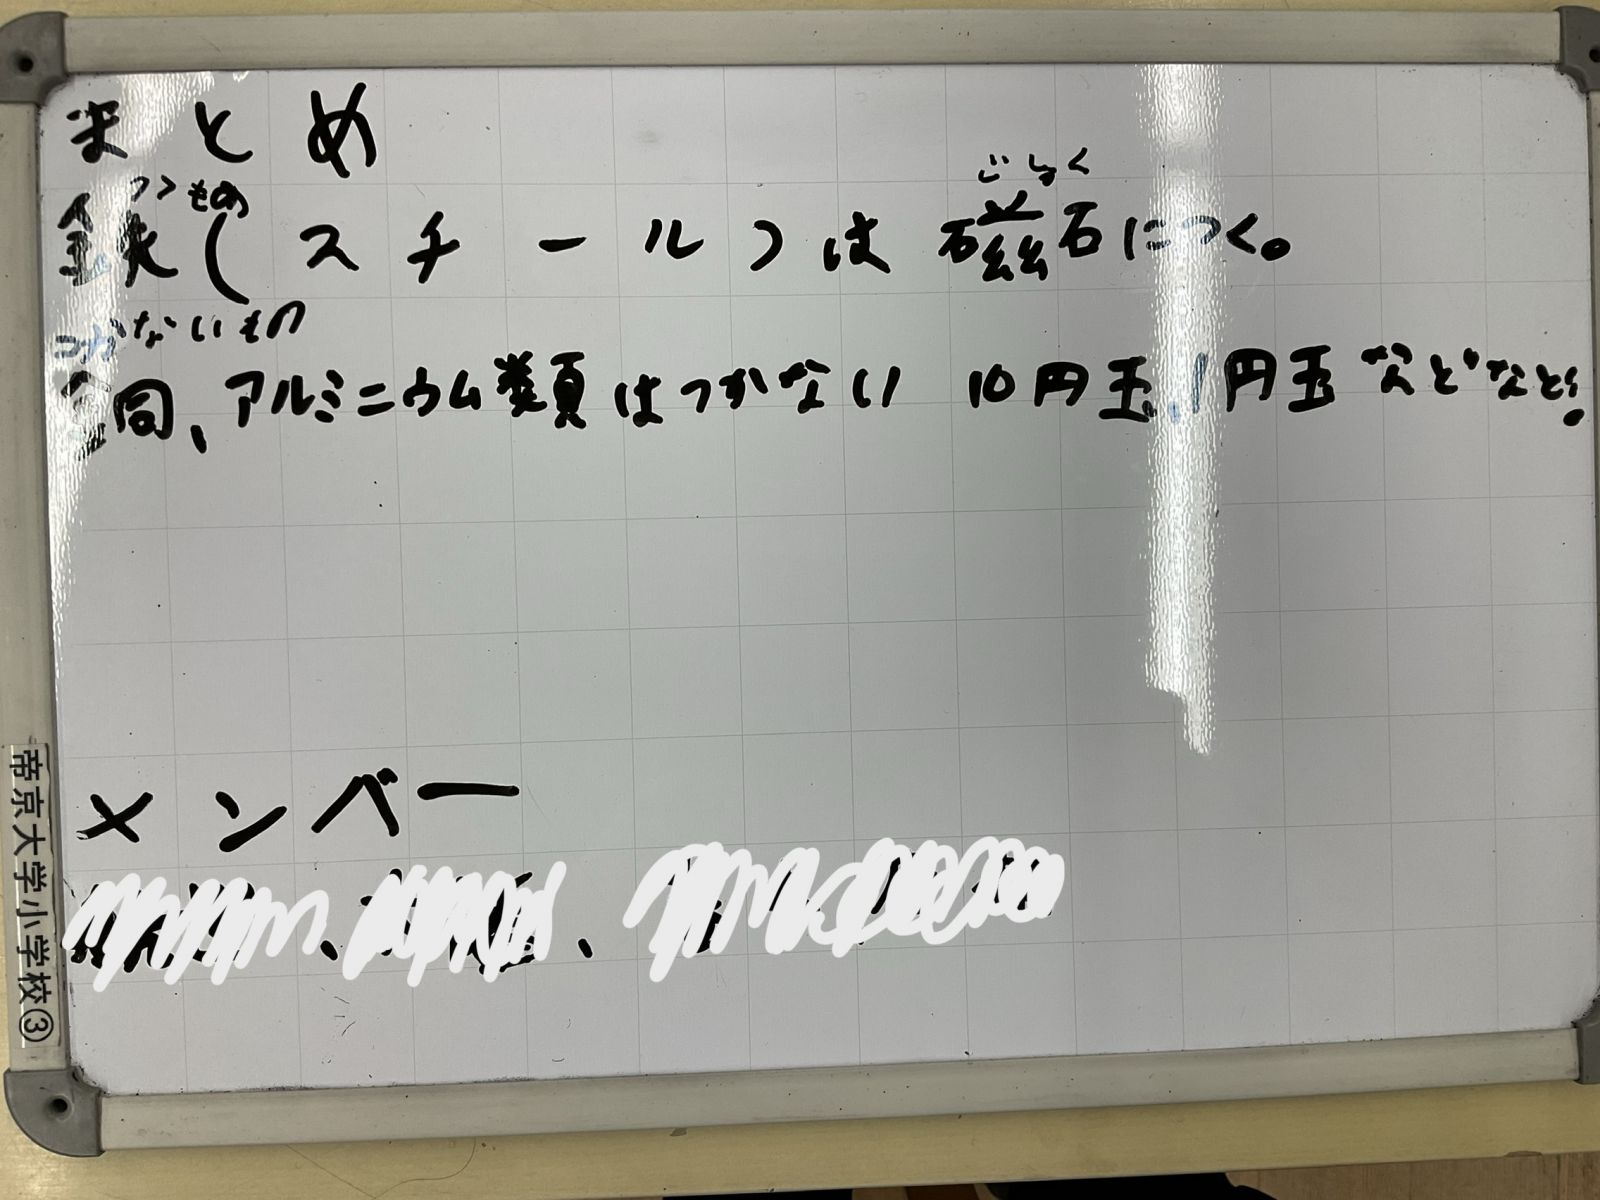 まとめ
つくもの
鉄(スチール)は磁石につく。
じしゃく
つかないもの
銅、アルミニウム類はつかない 10円玉、1円玉などなど。
メンバー
帝京大学小学校③